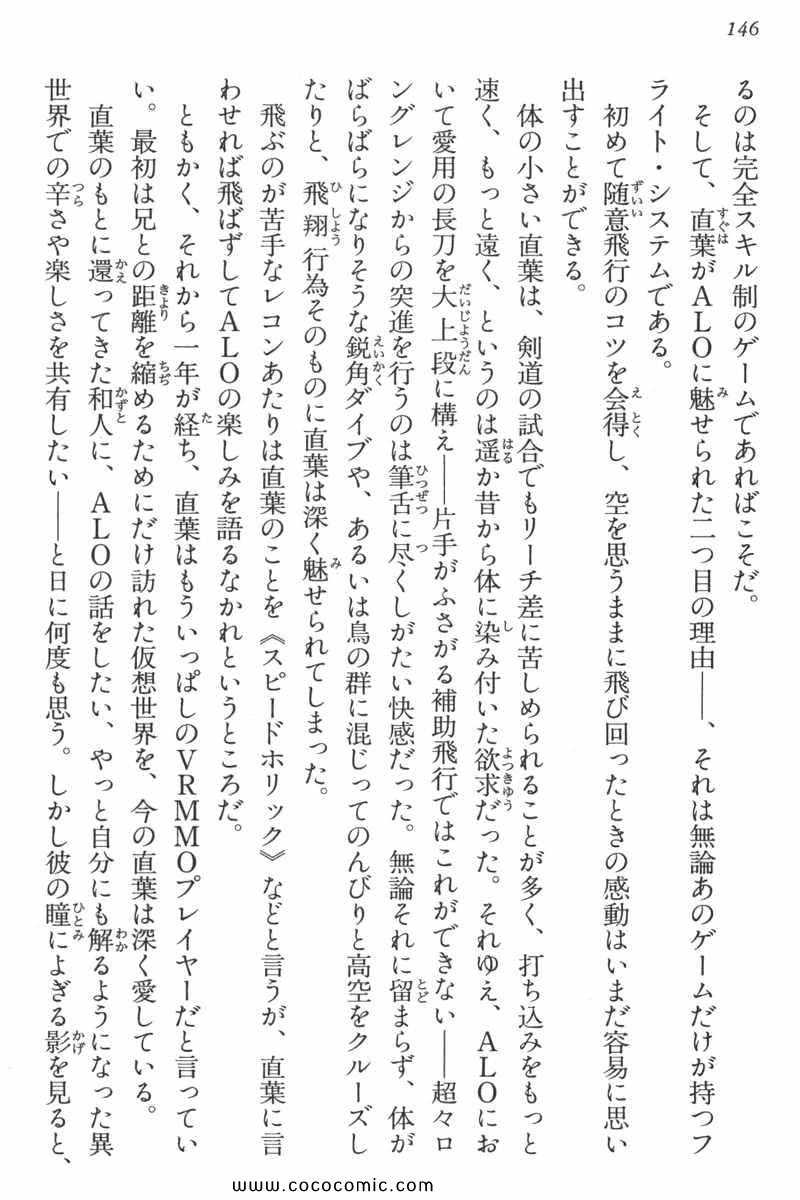 146
るのは完全スキル制のゲームであればこそだ。
そして、直葉がALOに魅せられた二つ目の理由――、それは無論あのゲームだけが持つフ
ライト・システムである。
初めて随意飛行のコツを会得し、空を思うままに飛び回ったときの感動はいまだ容易に思い
出すことができる。
体の小さい直葉は、剣道の試合でもリーチ差に苦しめられることが多く、打ち込みをもっと
速く、もっと遠く、というのは遥か昔から体に染み付いた欲求だった。それゆえ、ALOにお
いて愛用の長刀を大上段に構え――片手がふさがる補助飛行ではこれができない――超々ロ
ングレンジからの突進を行うのは筆舌に尽くしがたい快感だった。無論それに留まらず、体が
ばらばらになりそうな鋭角ダイブや、あるいは鳥の群に混じってのんびりと高空をクルーズし
たりと、飛翔行為そのものに直葉は深く魅せられてしまった。
飛ぶのが苦手なレコンあたりは直葉のことを《スピードホリック》などと言うが、直葉に言
わせれば飛ばずしてALOの楽しみを語るなかれというところだ。
ともかく、それから一年が経ち、直葉はもういっぱしのVRMMOプレイヤーだと言ってい
い。最初は兄との距離を縮めるためにだけ訪れた仮想世界を、今の直葉は深く愛している。
直葉のもとに還ってきた和人に、ALOの話をしたい、やっと自分にも解るようになった異
世界での辛さや楽しさを共有したい――と日に何度も思う。しかし彼の瞳によぎる影を見ると、
www.cococomic.com